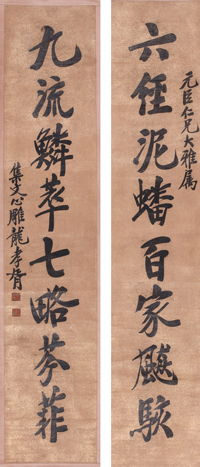 六經泥蟠百家飇駭
元臣仁兄大雅属
九流鱗萃七略芬菲
集文心雕龍孝胥